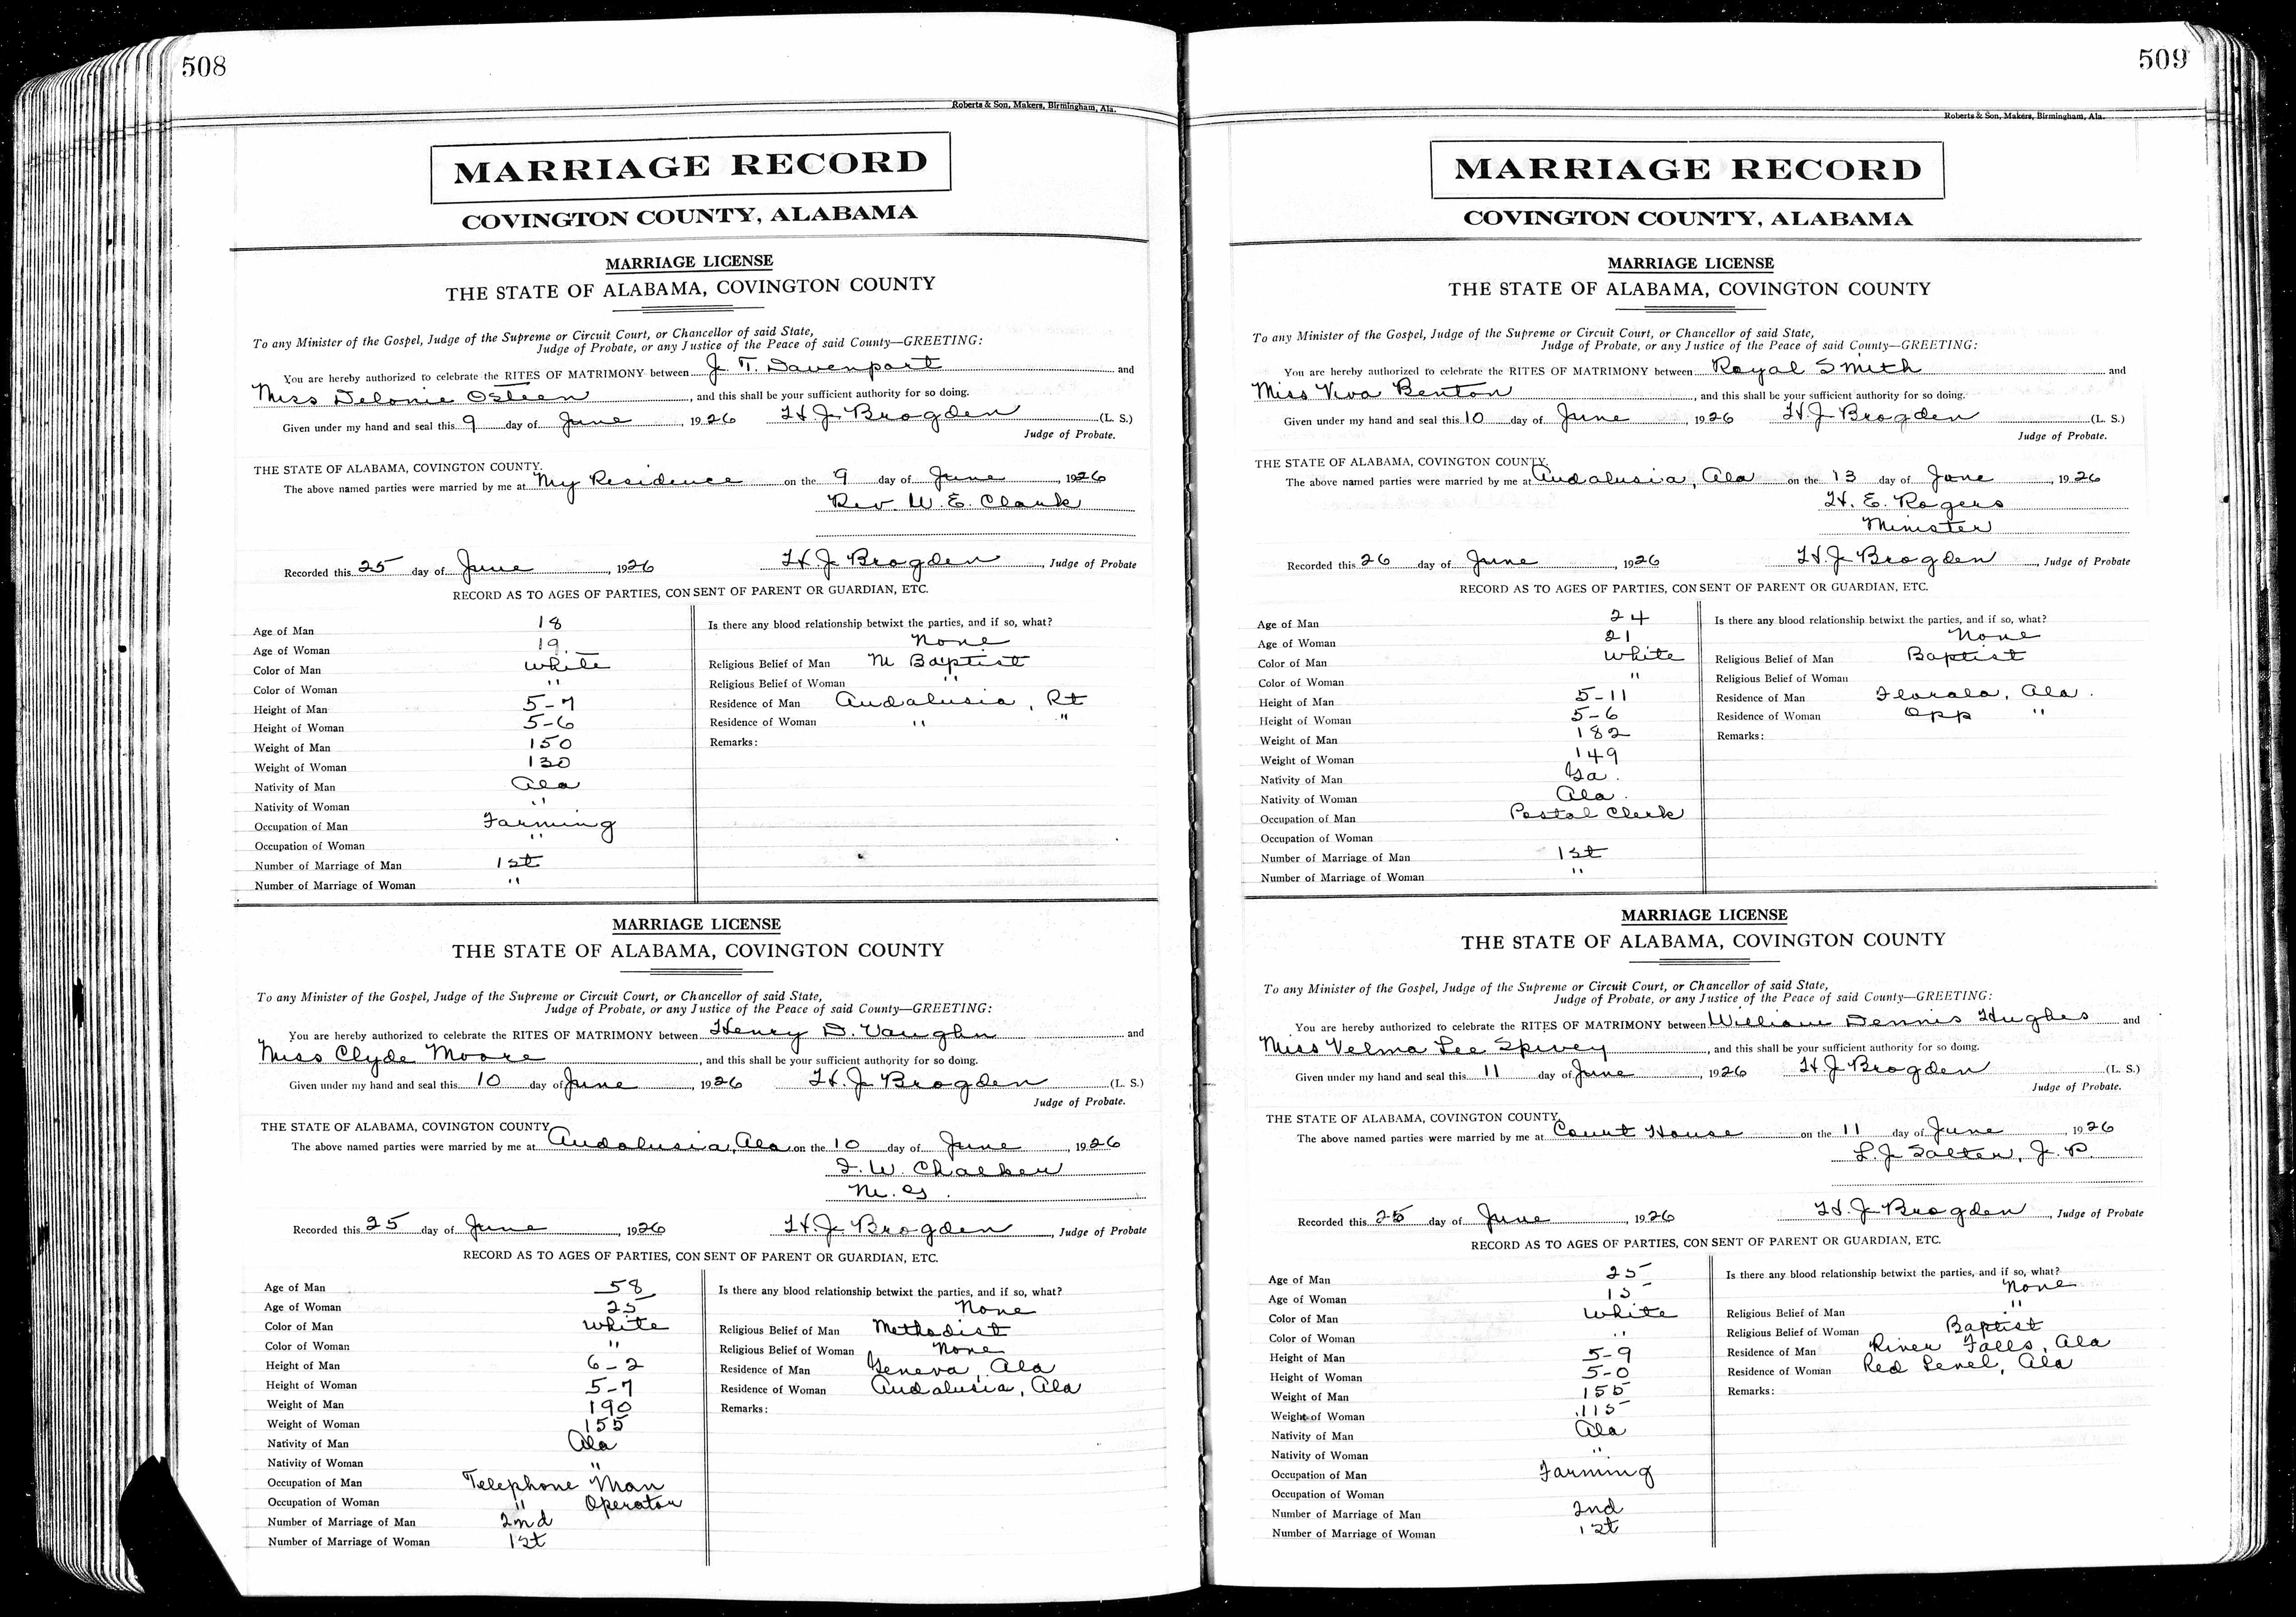 508
Roberts & Son, Makers, Birmingham, Ala.
MARRIAGE RECORD
COVINGTON COUNTY, ALABAMA
MARRIAGE LICENSE
THE STATE OF ALABAMA, COVINGTON COUNTY
To any Minister of the Gospel, Judge of the Supreme or Circuit Court, or Chancellor of said State,
Judge of Probate, or any Justice of the Peace of said County—GREETING:
You are hereby authorized to celebrate the RITES OF MATRIMONY between J. T. Davenport and
Miss Delonie Osteen, and this shall be your sufficient authority for so doing.
Given under my hand and seal this 9 day of June, 1926 H J Brogden (L. S.)
Judge of Probate.
THE STATE OF ALABAMA, COVINGTON COUNTY.
The above named parties were married by me at My Residence on the 9 day of June, 1926
Rev. W. E. Clark
Recorded this 25 day of June, 1926 H J Brogden, Judge of Probate
RECORD AS TO AGES OF PARTIES, CONSENT OF PARENT OR GUARDIAN, ETC.
Age of Man 18
Age of Woman 19
Color of Man white
Color of Woman "
Height of Man 5-7
Height of Woman 5-6
Weight of Man 150
Weight of Woman 130
Nativity of Man Ala
Nativity of Woman "
Occupation of Man Farming
Occupation of Woman "
Number of Marriage of Man 1st
Number of Marriage of Woman "
Is there any blood relationship betwixt the parties, and if so, what?
None
Religious Belief of Man M Baptist
Religious Belief of Woman "
Residence of Man Andalusia, Rt
Residence of Woman " "
Remarks:
MARRIAGE LICENSE
THE STATE OF ALABAMA, COVINGTON COUNTY
To any Minister of the Gospel, Judge of the Supreme or Circuit Court, or Chancellor of said State,
Judge of Probate, or any Justice of the Peace of said County—GREETING:
You are hereby authorized to celebrate the RITES OF MATRIMONY between Henry D. Vaughn and
Miss Clyde Moore, and this shall be your sufficient authority for so doing.
Given under my hand and seal this 10 day of June, 1926 H. J. Brogden (L. S.)
Judge of Probate.
THE STATE OF ALABAMA, COVINGTON COUNTY
The above named parties were married by me at Andalusia, Ala on the 10 day of June, 1926
J. W. Chalker
M. G.
Recorded this 25 day of June, 1926 H. J. Brogden, Judge of Probate
RECORD AS TO AGES OF PARTIES, CONSENT OF PARENT OR GUARDIAN, ETC.
Age of Man 58
Age of Woman 25
Color of Man white
Color of Woman "
Height of Man 6-2
Height of Woman 5-7
Weight of Man 190
Weight of Woman 155
Nativity of Man Ala
Nativity of Woman "
Occupation of Man Telephone Man
Occupation of Woman " Operator
Number of Marriage of Man 2nd
Number of Marriage of Woman 1st
Is there any blood relationship betwixt the parties, and if so, what?
None
Religious Belief of Man Methodist
Religious Belief of Woman None
Residence of Man Geneva, Ala
Residence of Woman Andalusia, Ala
Remarks:
509
Roberts & Son, Makers, Birmingham, Ala.
MARRIAGE RECORD
COVINGTON COUNTY, ALABAMA
MARRIAGE LICENSE
THE STATE OF ALABAMA, COVINGTON COUNTY
To any Minister of the Gospel, Judge of the Supreme or Circuit Court, or Chancellor of said State,
Judge of Probate, or any Justice of the Peace of said County—GREETING:
You are hereby authorized to celebrate the RITES OF MATRIMONY between Royal Smith and
Miss Viva Benton, and this shall be your sufficient authority for so doing.
Given under my hand and seal this 10 day of June, 1926 H. J. Brogden (L. S.)
Judge of Probate.
THE STATE OF ALABAMA, COVINGTON COUNTY
The above named parties were married by me at Andalusia, Ala on the 13 day of June, 1926
H. E. Rogers
Minister
Recorded this 26 day of June, 1926 H. J. Brogden, Judge of Probate
RECORD AS TO AGES OF PARTIES, CONSENT OF PARENT OR GUARDIAN, ETC.
Age of Man 24
Age of Woman 21
Color of Man White
Color of Woman "
Height of Man 5-11
Height of Woman 5-6
Weight of Man 182
Weight of Woman 149
Nativity of Man Ga.
Nativity of Woman Ala.
Occupation of Man Postal Clerk
Occupation of Woman
Number of Marriage of Man 1st
Number of Marriage of Woman "
Is there any blood relationship betwixt the parties, and if so, what?
None
Religious Belief of Man Baptist
Religious Belief of Woman
Residence of Man Florala, Ala.
Residence of Woman Opp "
Remarks:
MARRIAGE LICENSE
THE STATE OF ALABAMA, COVINGTON COUNTY
To any Minister of the Gospel, Judge of the Supreme or Circuit Court, or Chancellor of said State,
Judge of Probate, or any Justice of the Peace of said County—GREETING:
You are hereby authorized to celebrate the RITES OF MATRIMONY between William Dennis Hughes and
Miss Velma Lee Spivey, and this shall be your sufficient authority for so doing.
Given under my hand and seal this 11 day of June, 1926 H J Brogden (L. S.)
Judge of Probate.
THE STATE OF ALABAMA, COVINGTON COUNTY
The above named parties were married by me at Court House on the 11 day of June, 1926
L. J. Salter, J. P.
Recorded this 25 day of June, 1926 H. J. Brogden, Judge of Probate
RECORD AS TO AGES OF PARTIES, CONSENT OF PARENT OR GUARDIAN, ETC.
Age of Man 25
Age of Woman 15
Color of Man White
Color of Woman "
Height of Man 5-9
Height of Woman 5-0
Weight of Man 155
Weight of Woman 115
Nativity of Man Ala
Nativity of Woman "
Occupation of Man Farming
Occupation of Woman
Number of Marriage of Man 2nd
Number of Marriage of Woman 1st
Is there any blood relationship betwixt the parties, and if so, what?
None
Religious Belief of Man "
Religious Belief of Woman Baptist
Residence of Man River Falls, Ala
Residence of Woman Red Level, Ala
Remarks: